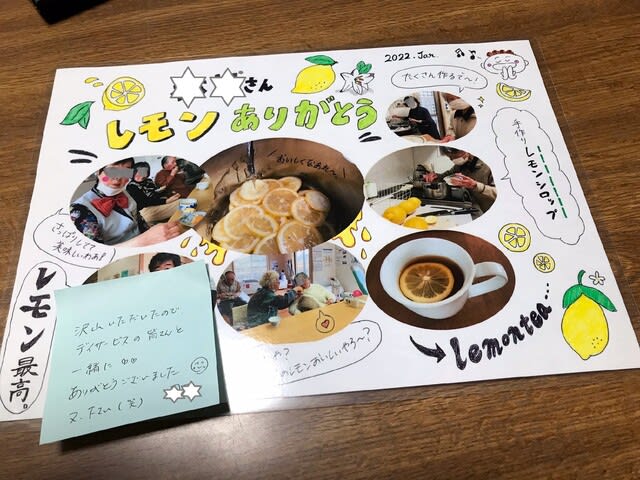 2022. Jan.
さん
レモン ありがとう
たくさん作るで〜!
おいしくなあれ〜
手作り
レモンシロップ
さっぱりしてて
美味しいわぁ!
レモン最高。
沢山いただいたので
デイサービスの皆さんと
一緒に
ありがとうございました
又、下さい(笑)
のレモンおいしいやろ〜?
lemontea...